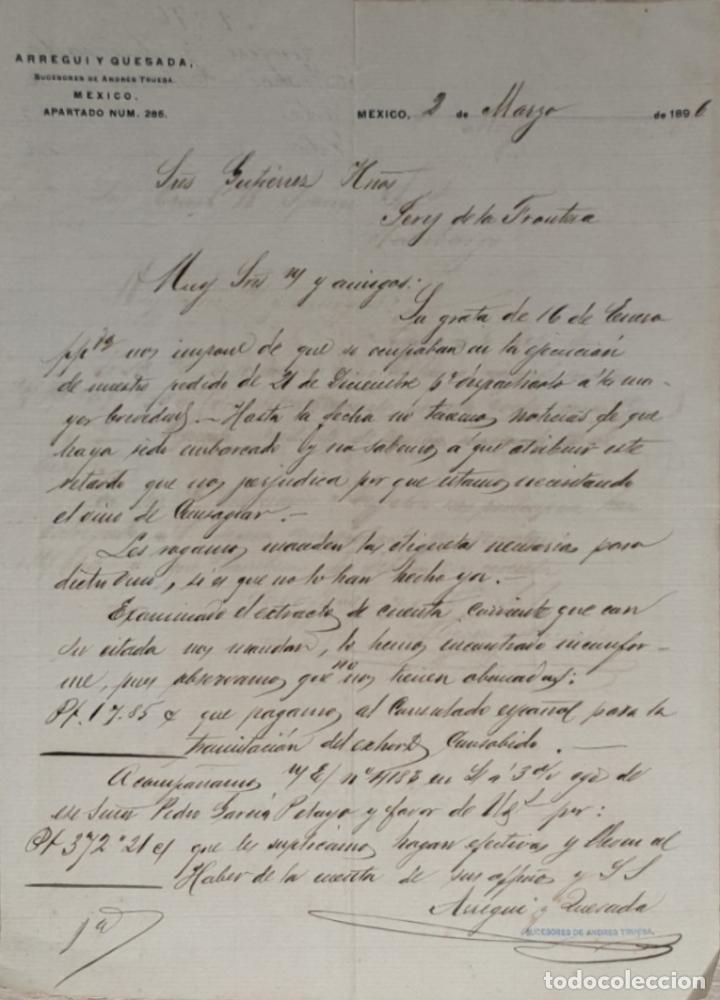 ARREGUI Y QUESADA,
SUCESORES DE ANDRES TRUEBA.
MEXICO.
APARTADO NUM. 286.
MEXICO, 2 de Marzo de 1896
Sres Gutiérrez Hnos
Jerez de la Frontera
Muy Sres m/ y amigos:
Su grata de 16 de Enero
pp nos impone de que se ocupaban en la ejecución
de nuestro pedido de 21 de Diciembre pº despacharlo á la ma-
yor brevedad. — Hasta la fecha no tenemos noticias de que
haya sido embarcado y no sabemos á qué atribuir este
retardo que nos perjudica por que estamos necesitando
el vino de Consagrar. —
Les rogamos manden las etiquetas necesarias para
dicho vino, si es que no lo han hecho ya. —
Examinado el extracto de cuenta corriente que con
su citada nos mandan, lo hemos encontrado inconfor-
me, pues observamos que no nos tienen abonadas:
Pt. 17.85 c que pagamos al Consulado español para la
tramitación del exhorto consabido. —
Acompañamos n/ L/ nº 4183 en á 3 d/v cgo de
ese Señor Pedro García Pelayo y favor de Uds por:
Pt 372"21 c que les suplicamos hagan efectivas y lleven al
Haber de la cuenta de sus affmos y S S
Arregui y Quesada
SUCESORES DE ANDRES TRUEBA.
1a
todocoleccion
todocoleccion.net